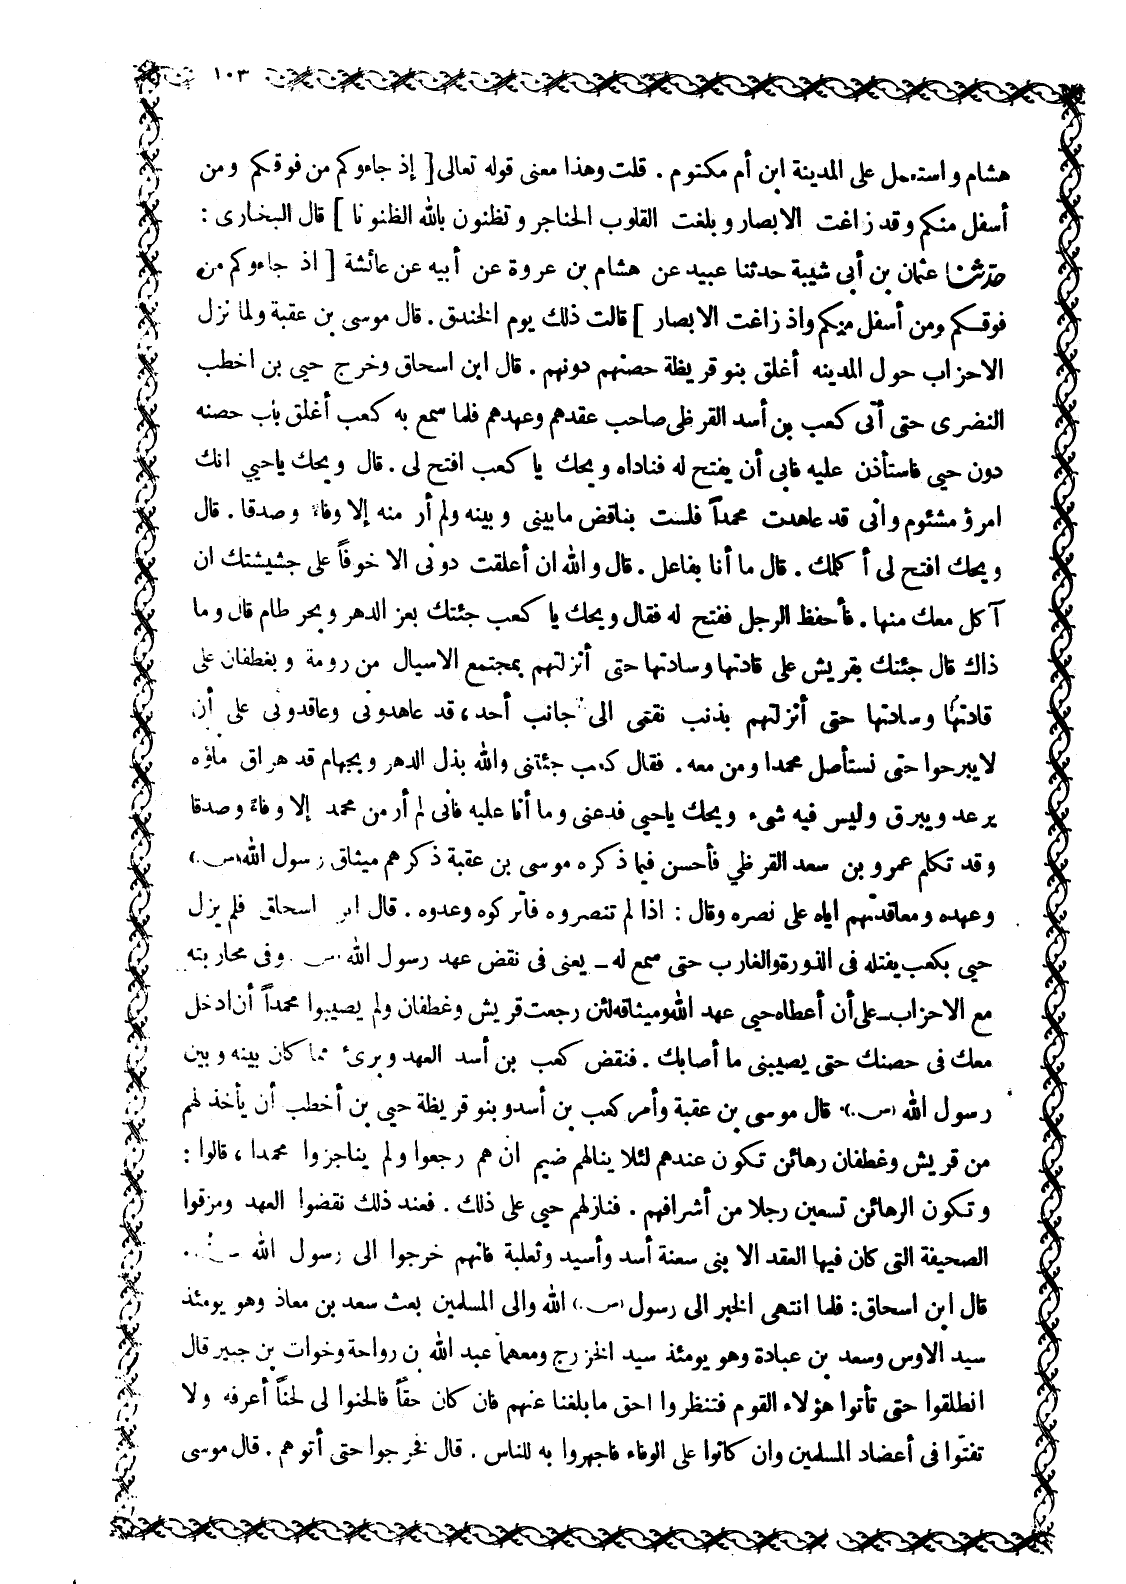 ١٠٣
هشام واستعمل على المدينة ابن أم مكتوم . قلت وهذا معنى قوله تعالى [ إذ جاءوكم من فوقكم ومن
أسفل منكم وقد زاغت الابصار وبلغت القلوب الحناجر وتظنون بالله الظنونا ] قال البخارى :
حدثنا عثمان بن أبى شيبة حدثنا عبيد عن هشام بن عروة عن أبيه عن عائشة [ اذ جاءوكم من
فوقكم ومن أسفل منكم واذ زاغت الابصار ] قالت ذلك يوم الخندق . قال موسى بن عقبة ولما نزل
الاحزاب حول المدينه أغلق بنو قريظة حصنهم دونهم . قال ابن اسحاق وخرج حيى بن اخطب
النضرى حتى أتى كعب بن أسد القرظى صاحب عقدهم وعهدهم فلما سمع به كعب أغلق باب حصنه
دون حيى فاستأذن عليه فابى أن يفتح له فناداه ويحك يا كعب افتح لى . قال ويحك ياحيي انك
امرؤ مشئوم وانى قد عاهدت محمداً فلست بناقض مابينى وبينه ولم أر منه إلا وفاء وصدقا . قال
ويحك افتح لى أكلمك . قال ما أنا بفاعل . قال والله ان أعلقت دونى الا خوفاً على جشيشتك ان
آكل معك منها . فأحفظ الرجل ففتح له فقال ويحك يا كعب جئتك بعز الدهر وبحر طام قال وما
ذاك قال جئتك بقريش على قادتها وسادتها حتى أنزلتهم بمجتمع الاسيال من رومة وبغطفان على
قادتها وسادتها حتى أنزلتهم بذنب نقتى الى جانب أحد، قد عاهدونى وعاقدونى على أن
لايبرحوا حتى نستأصل محمدا ومن معه . فقال كعب جئتنى والله بذل الدهر وبجهام قد هراق ماؤه
يرعد ويبرق وليس فيه شىء ويحك ياحيى فدعنى وما أنا عليه فانى لم أر من محمد إلا وفاءً وصدقا
وقد تكلم عمرو بن سعد القرظي فأحسن فيما ذكره موسى بن عقبة ذكرهم ميثاق رسول الله (س.)
وعهده ومعاقدتهم اياه على نصره وقال : اذا لم تنصروه فاتركوه وعدوه . قال ابن اسحاق فلم يزل
حيى بكعب يفتله فى الذورة والغارب حتى سمع له ــ يعنى فى نقض عهد رسول الله س. وفى محاربته
مع الاحزاب ــ على أن أعطاه حيى عهد الله وميثاقه لئن رجعت قريش وغطفان ولم يصيبوا محمداً أن ادخل
معك فى حصنك حتى يصيبنى ما أصابك . فنقض كعب بن أسد العهد وبرئ مما كان بينه وبين
رسول الله (س.). قال موسى بن عقبة وأمر كعب بن أسد وبنو قريظة حيى بن أخطب أن يأخذ لهم
من قريش وغطفان رهائن تكون عندهم لئلا ينالهم ضيم ان هم رجعوا ولم يناجزوا محمدا ، قالوا :
وتكون الرهائن تسعين رجلا من أشرافهم . فنازلهم حيى على ذلك . فعند ذلك نقضوا العهد ومزقوا
الصحيفة التى كان فيها العقد الا بنى سعنة أسد وأسيد وثعلبة فانهم خرجوا الى رسول الله
قال ابن اسحاق : فلما انتهى الخبر الى رسول (س.) الله والى المسلمين بعث سعد بن معاذ وهو يومئذ
سيد الاوس وسعد بن عبادة وهو يومئذ سيد الخزرج ومعهما عبد الله بن رواحة وخوات بن جبير قال
انطلقوا حتى تأتوا هؤلاء القوم فتنظروا احق مابلغنا عنهم فان كان حقاً فالحنوا لى لحناً أعرفه ولا
تفتّوا فى أعضاد المسلمين وان كانوا على الوفاء فاجهروا به للناس . قال فخرجوا حتى أتوهم . قال موسى